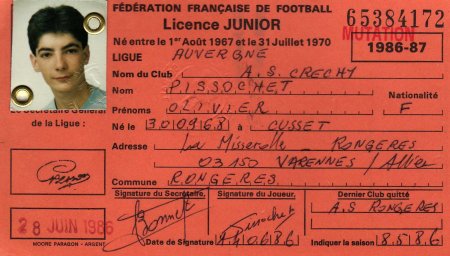 FÉDÉRATION FRANÇAISE DE FOOTBALL
65384172
Licence JUNIOR
MUTATION
Né entre le 1er Août 1967 et le 31 Juillet 1970
1986-87
LIGUE AUVERGNE
Nom du Club A.S. CRECHY
Nom PISSOCHET
Nationalité
Prénoms OLIVIER F
Le Secrétaire Général
de la Ligue :
Né le 30 09 68 à CUSSET
Adresse La Misserolle RONGERES
03150 VARENNES / Allier
Commune RONGERES
Signature du Secrétaire, Signature du Joueur, Dernier Club quitté
A.S RONGERES
28 JUIN 1986
Date de Signature 14.06.86 Indiquer la saison 8.5/8.6
MOORE PARAGON - ARGENT